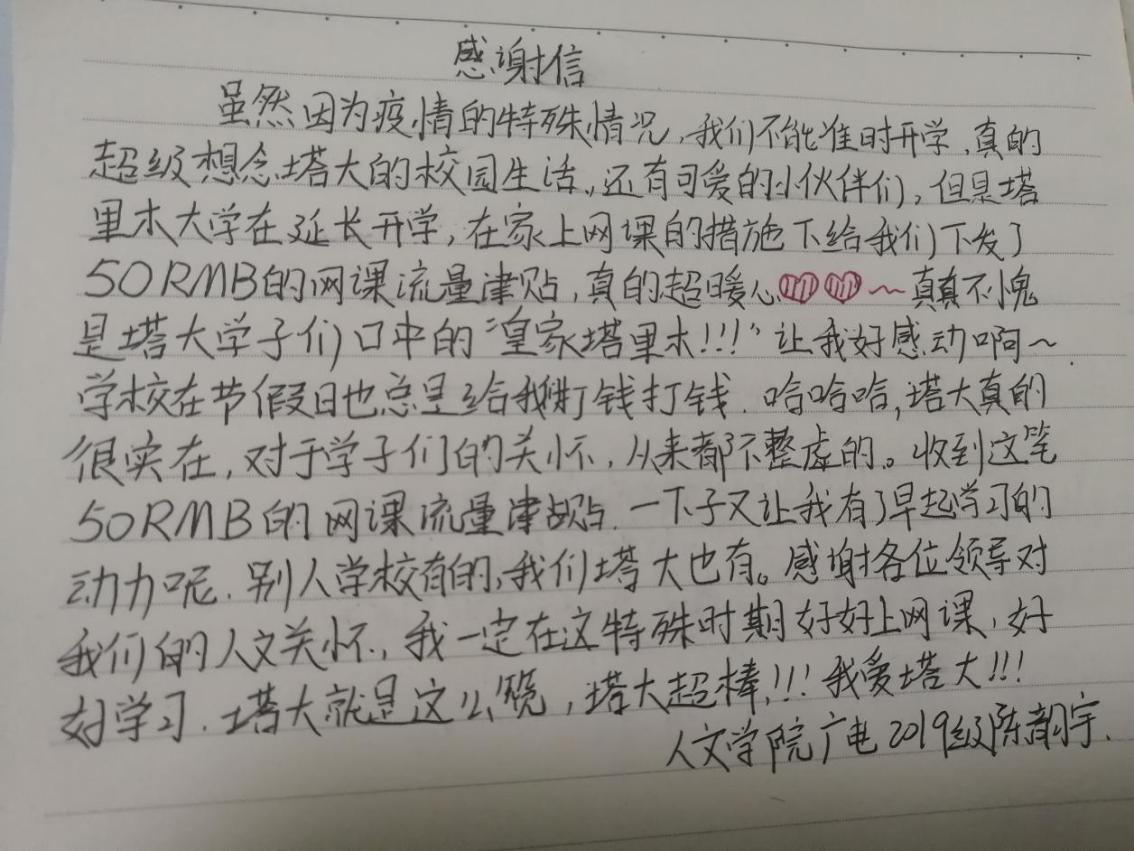 感谢信
虽然因为疫情的特殊情况,我们不能准时开学,真的
超级想念塔大的校园生活,还有可爱的小伙伴们,但是塔
里木大学在延长开学,在家上网课的措施下给我们下发了
50RMB的网课流量津贴,真的超暖心~真真不愧
是塔大学子们口中的"皇家塔里木!!!"让我好感动啊~
学校在节假日也总是给我们打钱打钱.哈哈哈,塔大真的
很实在,对于学子们的关怀,从来都不整虚的。收到这笔
50RMB的网课流量津贴.一下子又让我有了早起学习的
动力呢.别人学校有的,我们塔大也有。感谢各位领导对
我们的人文关怀,我一定在这特殊时期好好上网课,好
好学习.塔大就是这么,塔大超棒!!!我爱塔大!!!
人文学院广电2019级陈宇.